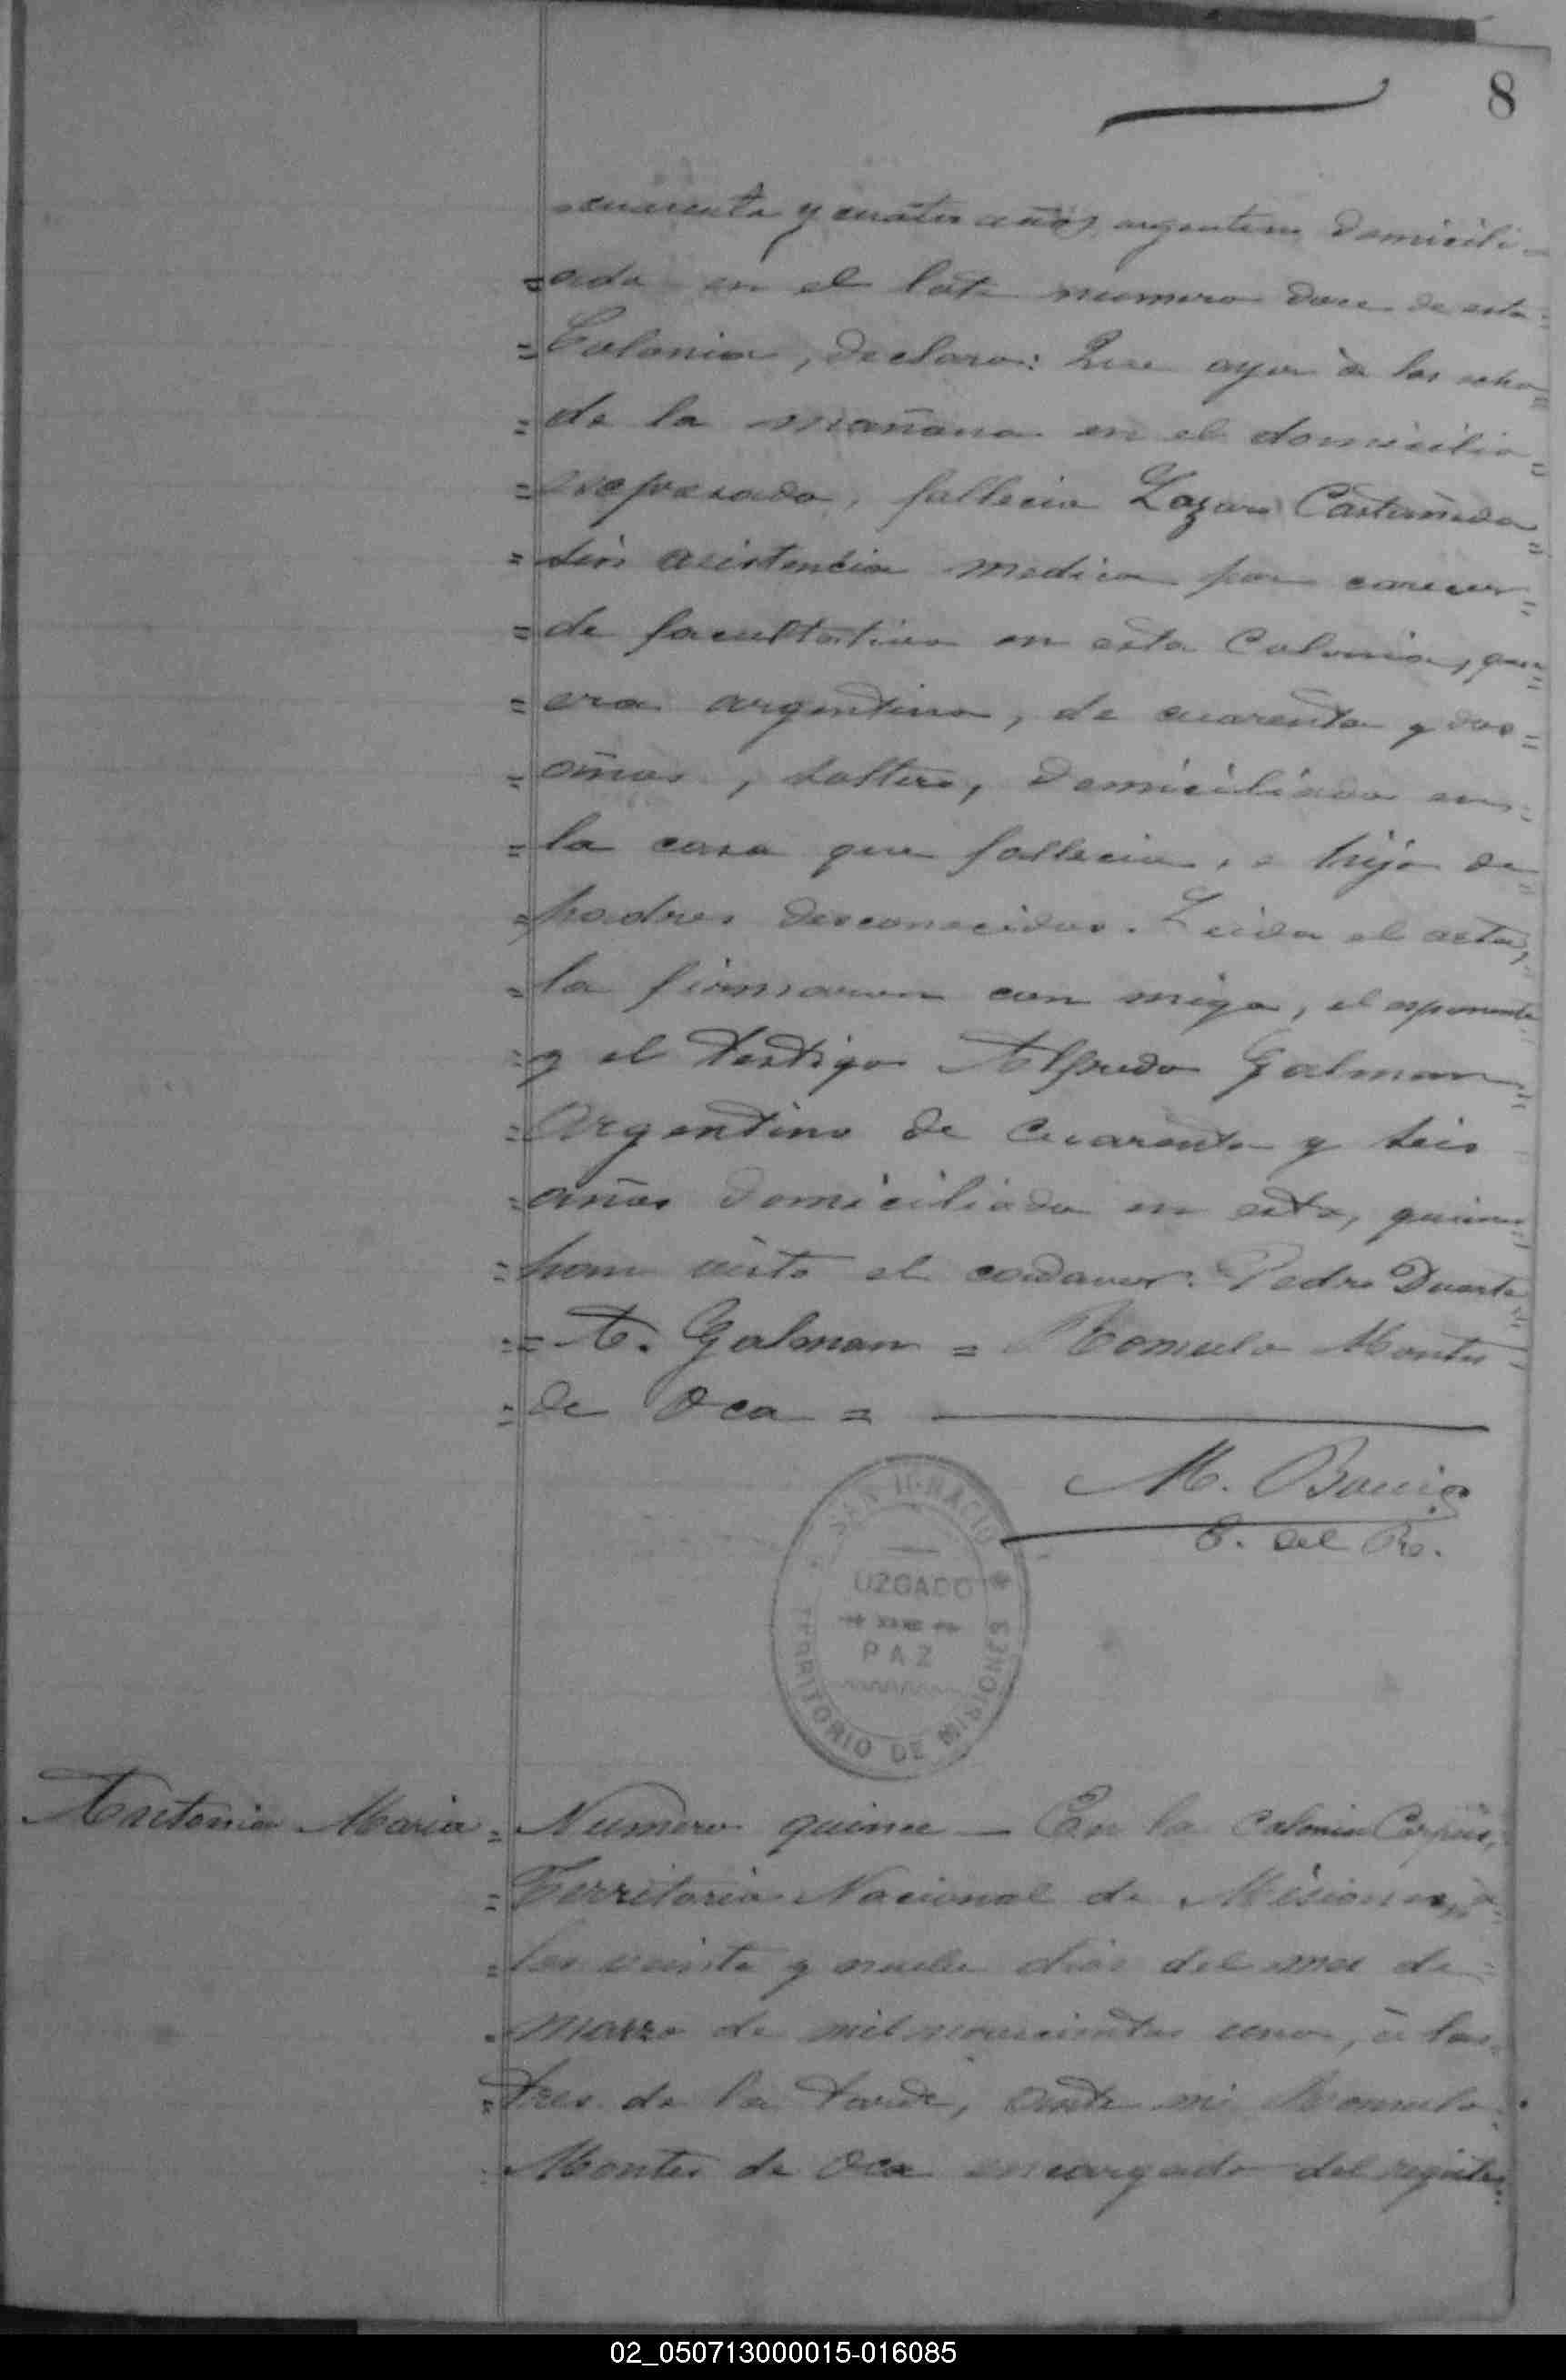 8
cuarenta y cuatro años, argentino domicili-
ado en el lote numero doce de esta
Colonia, declaro: Que ayer à las ocho
de la mañana en el domicilio
expresado, fallecio Lazaro Castañeda
sin asistencia medica por carecer
de facultativo en esta Colonia, que
era argentino, de cuarenta y dos
años, soltero, domiciliado en
la casa que fallecio, hijo de
padres desconocidos. Leida el acta,
la firmaron con migo, el esponente
y el testigo Alfredo Galman
Argentino de cuarenta y seis
años domiciliado en esta, quienes
han visto el cadaver. Pedro Duarte
= A. Galman = Romulo Montes
de Oca =
M.
E. del R.
SAN IGNACIO
UZGADO
PAZ
TERRITORIO DE MISIONES
Antonia Maria
Numero quince — En la Colonia Corpus,
Territorio Nacional de Misiones, à
los veinte y nueve dias del mes de
marzo de mil novecientos uno, à las
tres de la tarde, ante mi Romulo
Montes de Oca encargado del registro
02_050713000015-016085